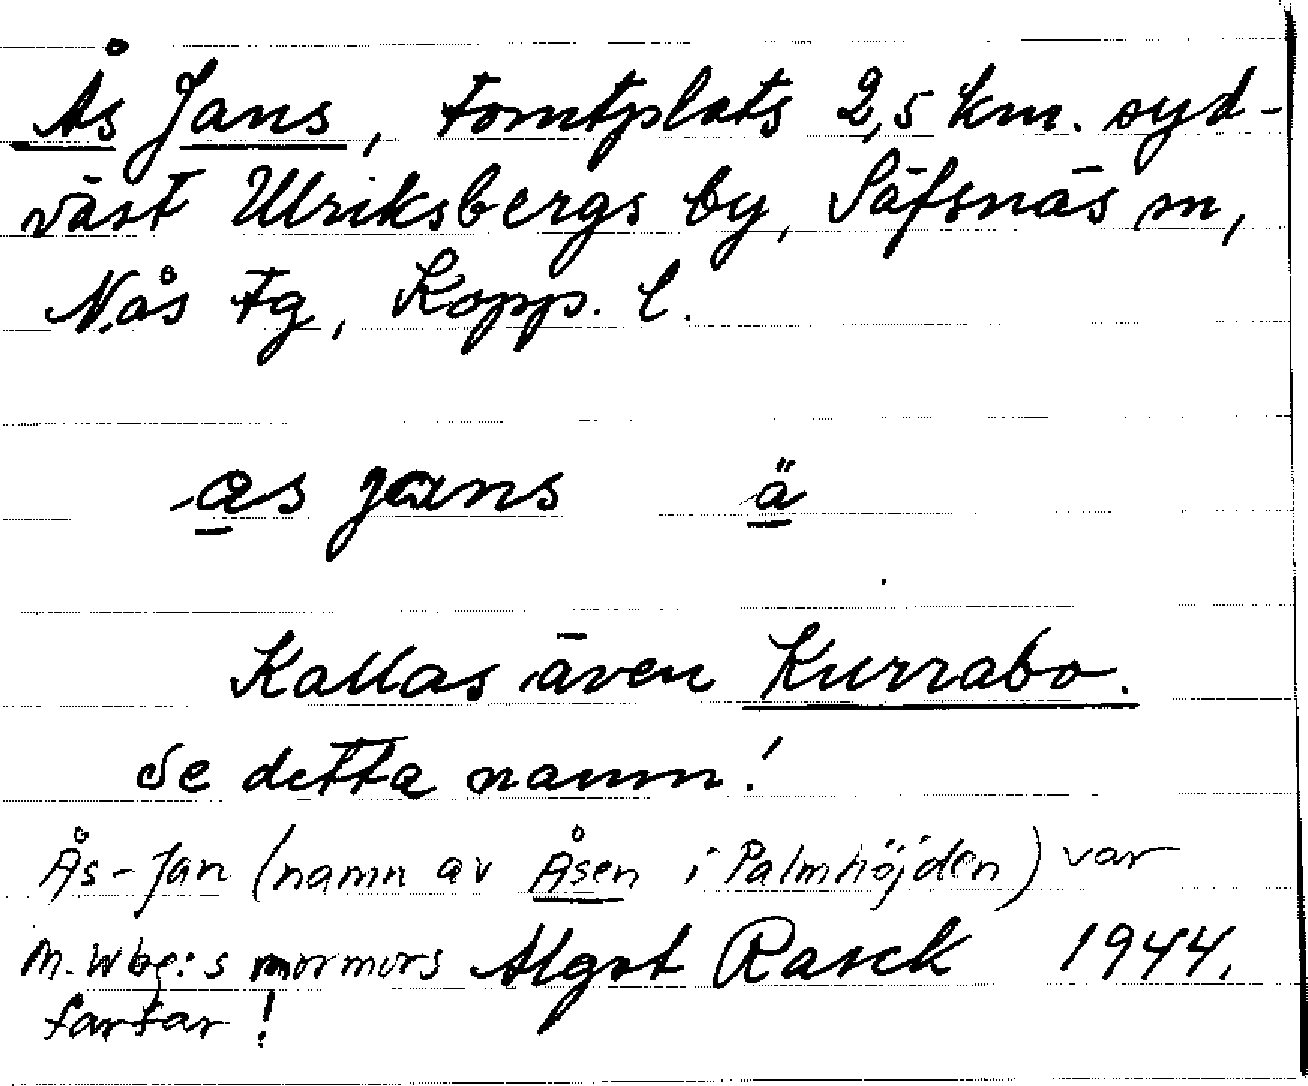 Ås Jans, tomtplats 2,5 km. syd-
väst Ulriksbergs by, Säfsnäs sn,
Nås tg, Kopp. l.
as jans ä
Kallas även Kurrabo.
Se detta namn!
Ås-Jan (namn av Åsen i Palmhöjden) var
M. Wbg:s mormors Algot Rasck 1944.
farfar!